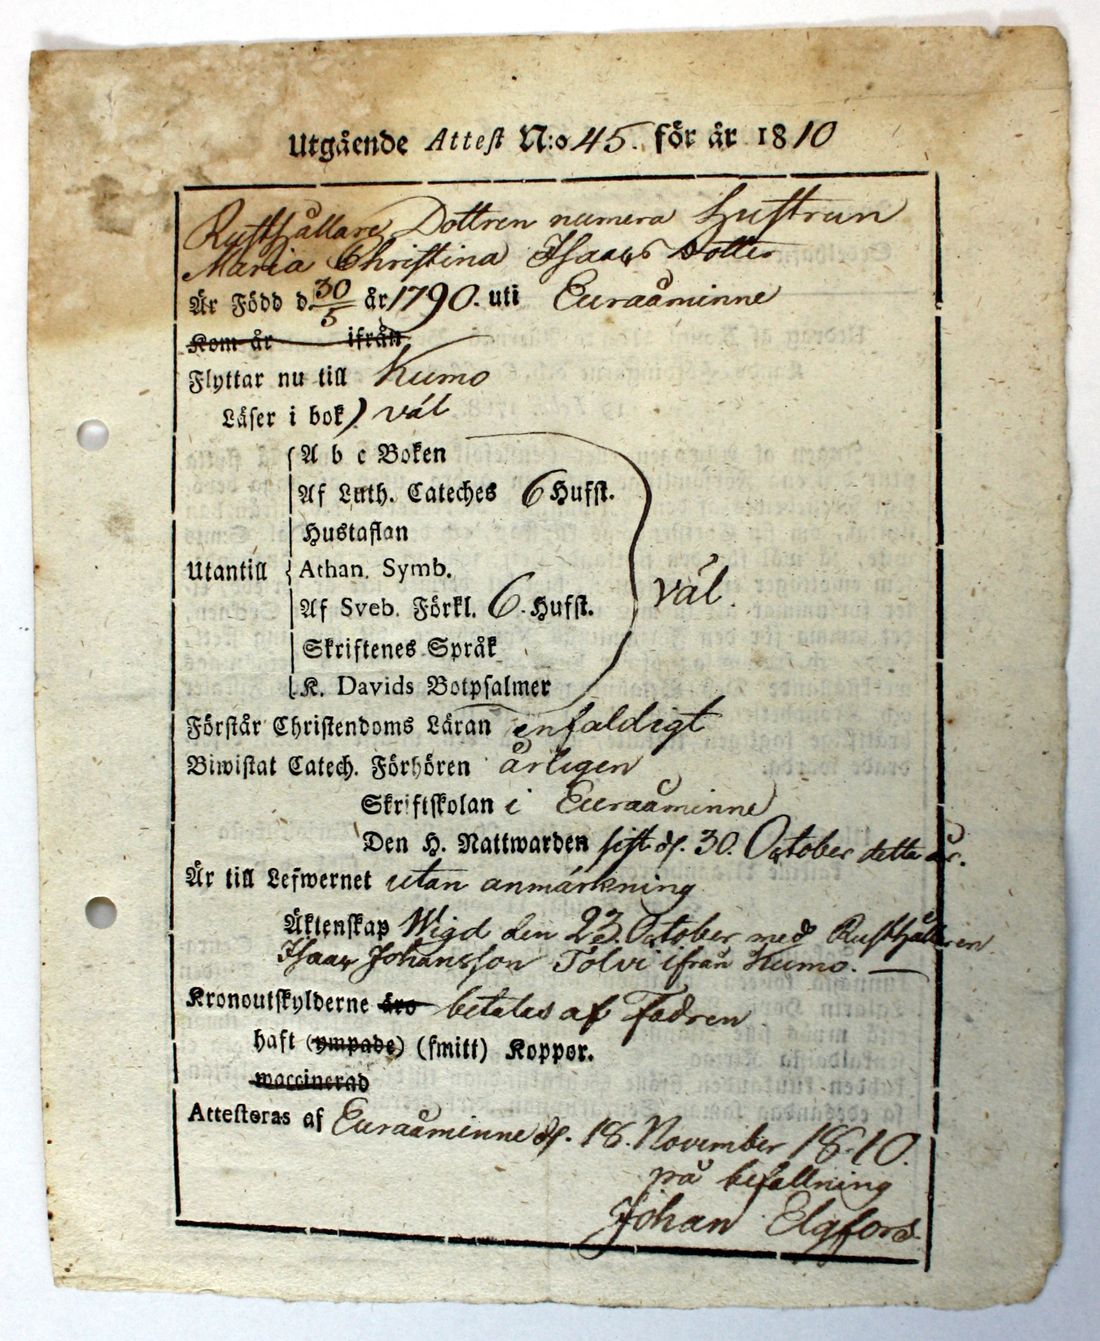 Utgående Attest N:o 45. för år 1810
Rusthållare Dottren numera Hustrun
Maria Christina Isaacs Dotter
Är Född d. 30/5 år 1790. uti Euraåminne
Kom år ifrån
Flyttar nu till Kumo
Läser i bok) väl
A b c Boken
Af Luth. Cateches 6 Hufst.
Hustaflan
Utantill Athan. Symb. väl
Af Sveb. Förkl. 6. Hufst.
Skriftenes Språk
K. Davids Botpsalmer
Förstår Christendoms Läran enfaldigt
Biwistat Catech. Förhören årligen
Skriftskolan i Euraåminne
Den H. Nattwarden sist d. 30. October detta år.
Är till Lefwernet utan anmärkning
Äktenskap Wigd den 23. October med Rusthållaren
Isaac Johansson Tolvi ifrån Kumo.
Kronoutskylderne äro betalas af Fadren
haft (ympade) (smitt) Koppor.
waccinerad
Attesteras af Euraåminne d. 18. November 1810.
på befallning
Johan Elgfors